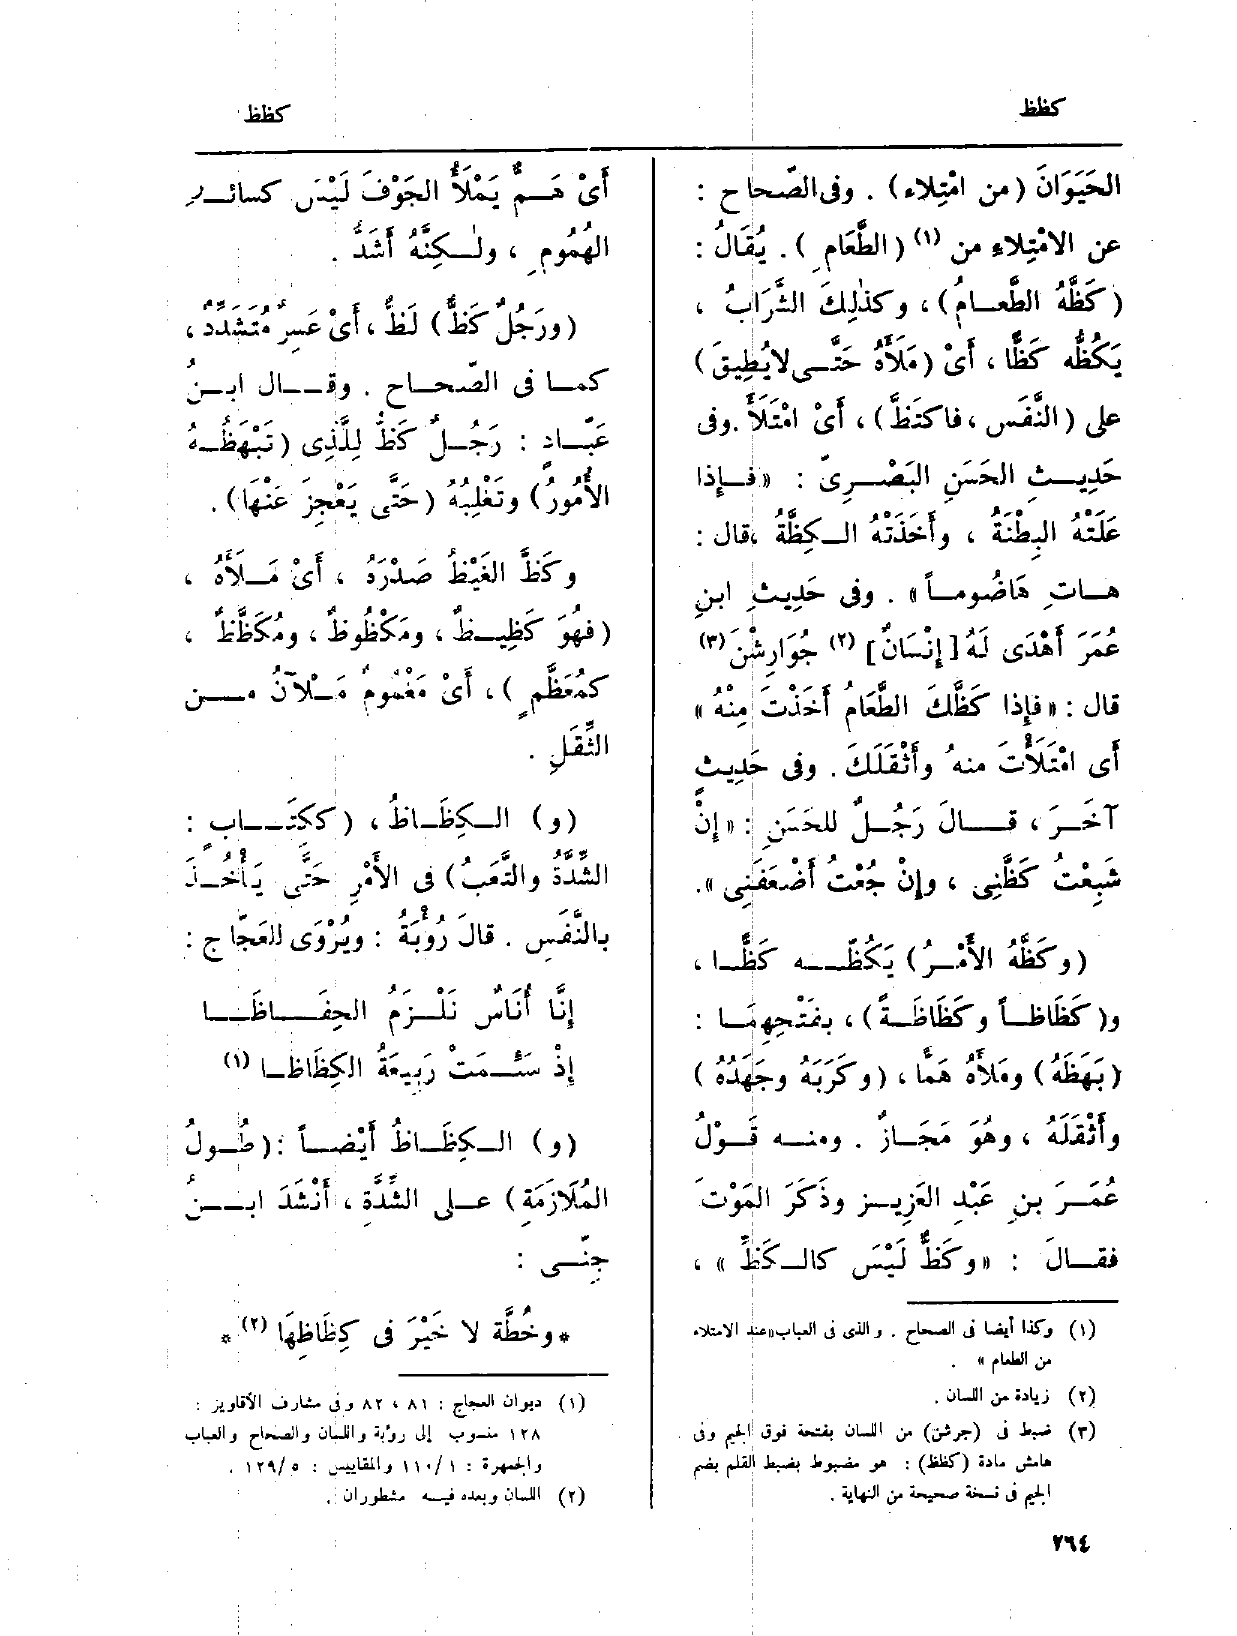 كظظ
كظظ
الحَيَوَانَ (من امْتِلاءِ) . وفى الصّحاح :
عن الامْتِلاءِ من (١) (الطَّعَامِ) . يُقَالُ :
(كَظَّهُ الطَّعــامُ) ، وكذٰلِكَ الشَّرَابُ ،
يَكُظُّه كَظًّا ، أَىْ (مَلَأَهُ حَتَّــى لايُطِيقَ)
على (النَّفَسِ ، فاكتَظَّ) ، أَىْ امْتَلَأَ .وفى
حَدِيــثِ الحَسَنِ البَصْــرِىّ : «فــإِذا
عَلَتْهُ البِطْنَةُ ، وأَخَذَتْهُ الــكِظَّةُ ،قال :
هــاتِ هَاضُومــاً» . وفى حَدِيثِ ابنِ
عُمَرَ أَهْدَى لَهُ [إِنْسَانٌ] (٢) جُوَارِشْنَ (٣)
قال : «فإِذا كَظَّكَ الطَّعَامُ أَخَذْتَ مِنْهُ»
أَى امْتَلَأْتَ منهُ وأَثْقَلَكَ . وفى حَدِيثٍ
آخَــرَ ، قــــالَ رَجُــلٌ للحَسَنِ : «إِنْ
شَبِعْتُ كَظَّنِى ، وإِنْ جُعْتُ أَضْعَفَنِى» .
(وكَظَّهُ الأَمْــرُ) يَكُظّــــه كَظًّــا ،
و(كَظَاظــاً وكَظَاظَــةً) ، بفَتْحِهِمَــا :
(بَهَظَهُ) ومَلأَهُ هَمًّا ، (وكَرَبَهُ وجَهَدَهُ)
وأَثْقَلَهُ ، وهُوَ مَجَــازٌ . ومنــه قَــوْلُ
عُمَــرَ بنِ عَبْدِ العَزِيــزِ وذَكَرَ المَوْتَ
فقــالَ : «وكَظٌّ لَيْسَ كالــكَظِّ» ،
(١) وكذا أيضا فى الصحاح . والذى فى العباب «عند الامتلاء
من الطعام» .
(٢) زيادة من اللسان .
(٣) ضبط فى (جرشن) من اللسان بفتحة فوق الجيم وفى
هامش مادة (كظظ) : هو مضبوط بضبط القلم بضم
الجيم فى نسخة صحيحة من النهاية .
أَىْ هَــمٌّ يَمْلَأُ الجَوْفَ لَيْسَ كسائــرِ
الهُمُومِ ، ولٰــكِنَّهُ أَشَدُّ .
(ورَجُلٌ كَظٌّ) لَظٌّ ، أَىْ عَسِرٌ مُتَشَدِّدٌ ،
كمــا فى الصّحــاح . وقــــال ابــنُ
عَبّــادٍ : رَجُــلٌ كَظٌّ لِلَّذِى (تَبْهَظُــهُ
الأُمُورُ) وتَغْلِبُهُ (حَتَّى يَعْجِزَ عَنْهَا) .
وكَظَّ الغَيْظُ صَدْرَهُ ، أَىْ مَــلَأَهُ ،
(فهُوَ كَظِيــظٌ ، ومَكْظُوظٌ ، ومُكَظَّظٌ ،
كمُعَظَّمٍ) ، أَىْ مَغْمُومٌ مَــلْآنُ مــــن
الثِّقَلِ .
(و) الــكِظَــاظُ ، (ككِتَــــابٍ :
الشِّدَّةُ والتَّعَبُ) فى الأَمْرِ حَتَّى يَأْخُــذَ
بالنَّفَسِ . قالَ رُؤْبَةُ : ويُرْوَى للعَجّاج :
إِنَّا أُنَاسٌ نَلْــزَمُ الحِفَــــاظَــا
إِذْ سَئِــمَتْ رَبِيعَةُ الكِظَاظَــا (١)
(و) الــكِظَــاظُ أَيْضــاً : (طُــولُ
المُلَازَمَةِ) عــلى الشِّدَّةِ ، أَنْشَدَ ابــــنُ
جِنِّــى :
* وخُطَّة لا خَيْرَ فى كِظَاظِهَا (٢) *
(١) ديوان العجاج : ٨١ ، ٨٢ وفى مشارف الأقاويز :
١٢٨ منسوب إلى رؤبة واللسان والصحاح والعباب
والجمهرة : ١ /١١٠ والمقاييس : ٥ /١٢٩ .
(٢) اللسان وبعده فيــه مشطوران .
٢٦٤